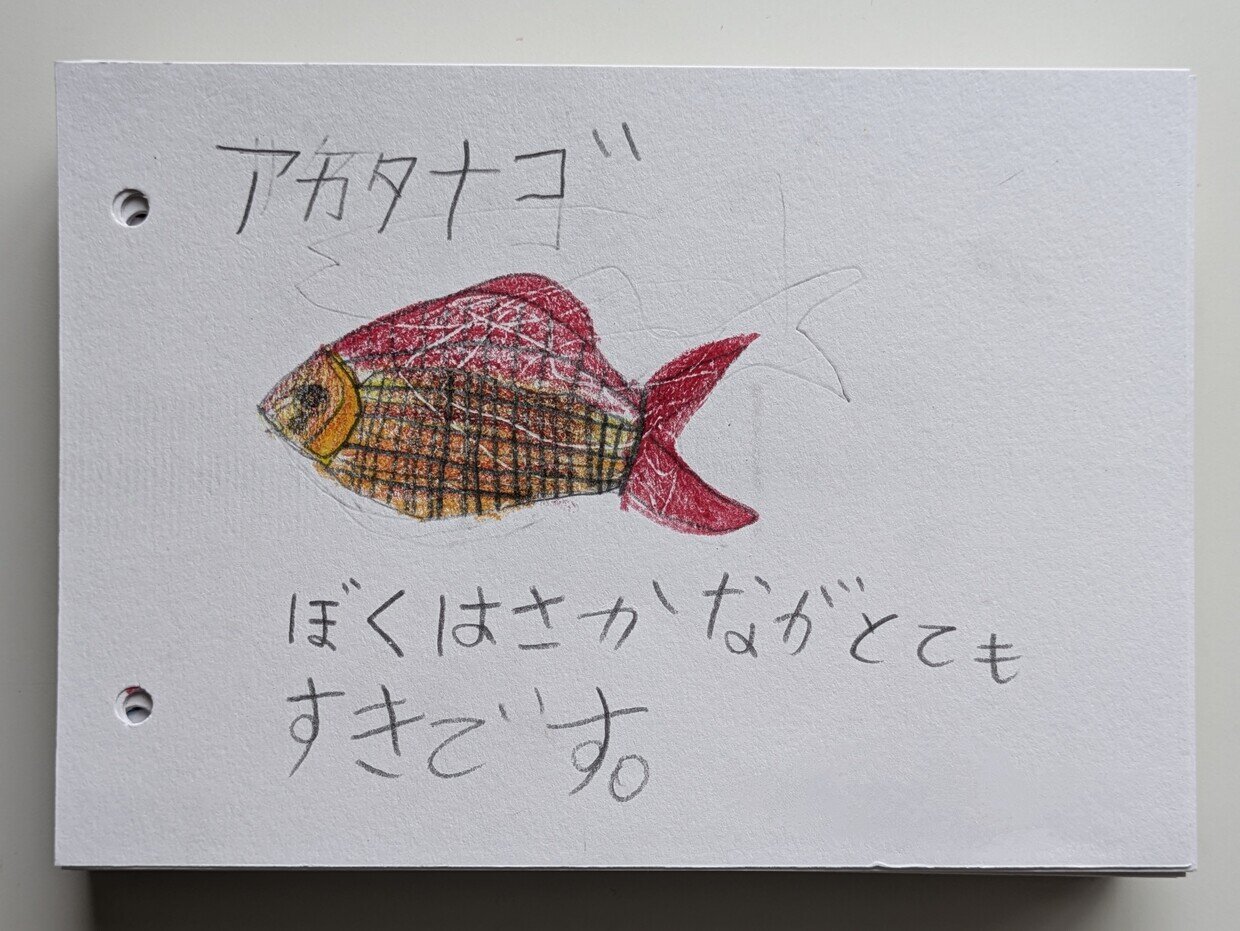 アカタナゴ
ぼくはさかながとても
すきです。